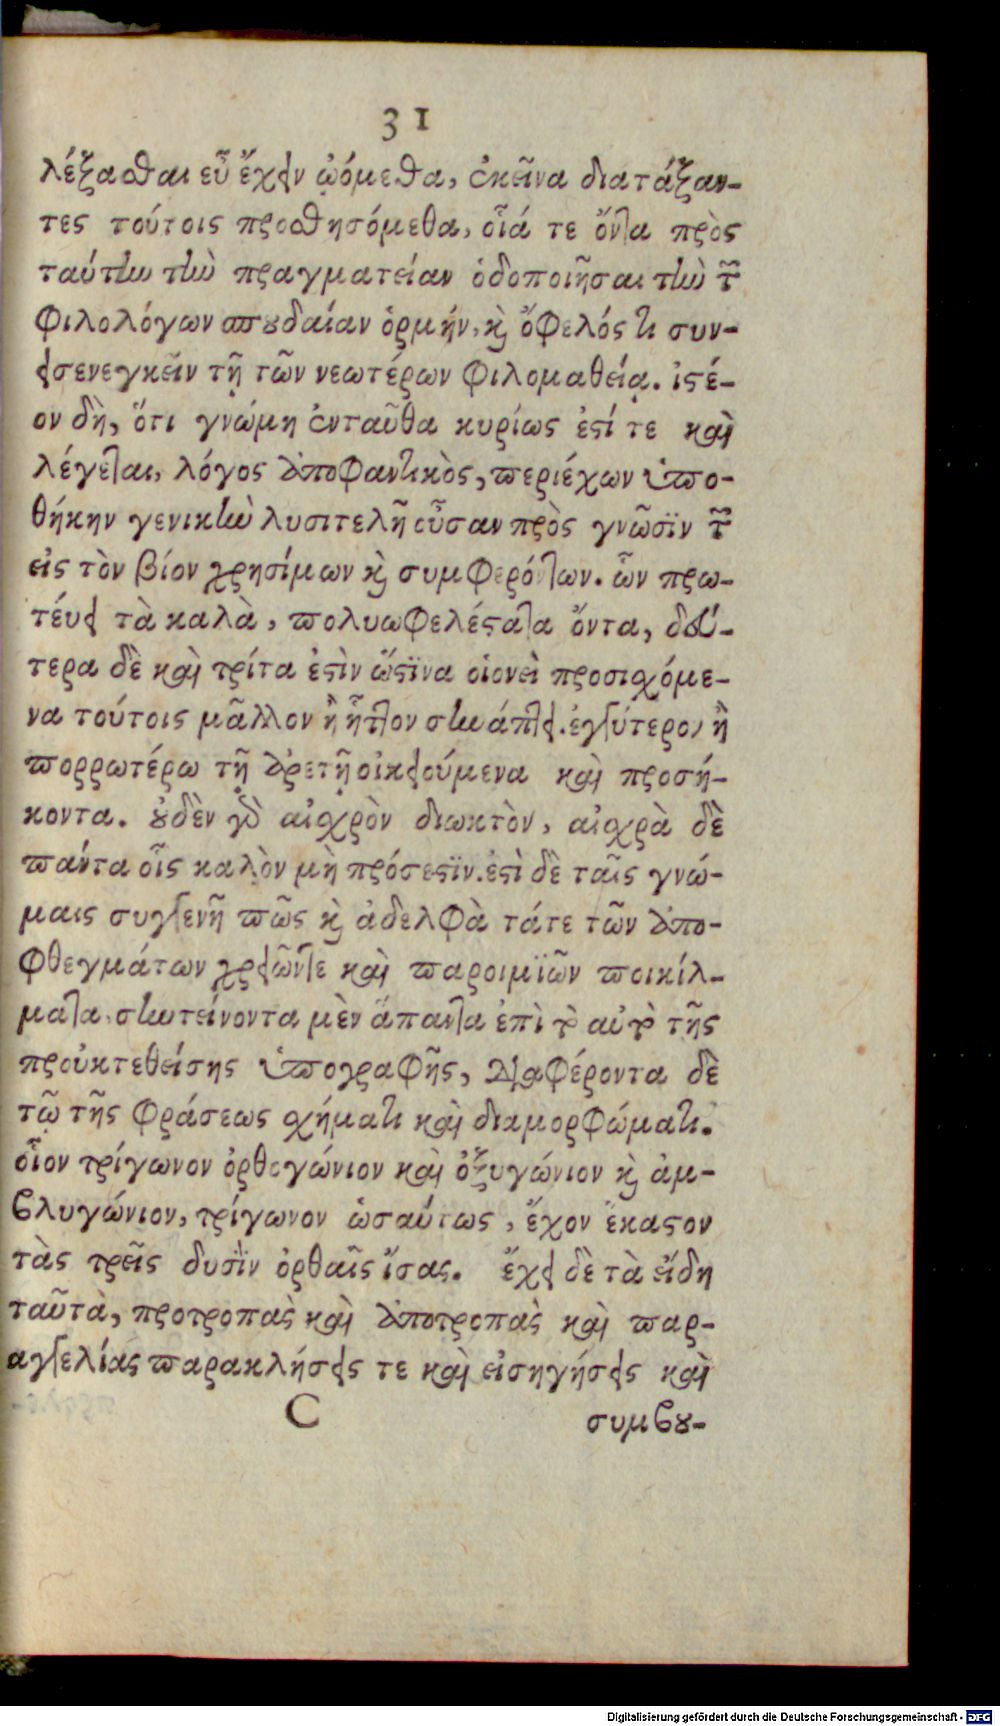 31
λέξασθαι εὖ ἔχειν ᾠόμεθα, ἐκεῖνα διατάξαν-
τες τούτοις προσθησόμεθα, οἷά τε ὄντα πρὸς
ταύτην τὴν πραγματείαν ὁδοποιῆσαι τὴν τῶν
φιλολόγων σπουδαίαν ὁρμήν, καὶ ὄφελός τι συν-
εισενεγκεῖν τῇ τῶν νεωτέρων φιλομαθείᾳ. ἰστέ-
ον δὴ, ὅτι γνώμη ἐνταῦθα κυρίως ἐστί τε καὶ
λέγεται, λόγος ἀποφαντικὸς, περιέχων ὑπο-
θήκην γενικὴν λυσιτελῆ οὖσαν πρὸς γνῶσϊν τῶν
εἰς τὸν βίον χρησίμων καὶ συμφερόντων. ὧν πρω-
τεύει τὰ καλὰ, πολυωφελέστατα ὄντα, δεύ-
τερα δὲ καὶ τρίτα ἐστὶν ὥστϊνα οἱονεὶ προσισχόμε-
να τούτοις μᾶλλον ἢ ἧττον συνάπτει. ἐγγύτερον ἢ
πορρωτέρω τῇ ἀρετῇ οἰκειούμενα καὶ προσή-
κοντα. οὐδὲν γὰρ αἰσχρὸν διωκτὸν, αἰσχρὰ δὲ
πάντα οἷς καλὸν μὴ πρόσεστϊν. ἐστὶ δὲ ταῖς γνώ-
μαις συγγενῆ πῶς καὶ ἀδελφὰ τάτε τῶν ἀπο-
φθεγμάτων χρειῶντε καὶ παροιμϊῶν ποικίλ-
ματα, συντείνοντα μὲν ἅπαντα ἐπὶ τὸ αὐτὸ τῆς
προὐκτεθείσης ὑπογραφῆς, διαφέροντα δὲ
τῷ τῆς φράσεως σχήματι καὶ διαμορφώματι.
οἷον τρίγωνον ὀρθογώνιον καὶ ὀξυγώνιον καὶ ἀμ-
βλυγώνιον, τρίγωνον ὡσαύτως, ἔχον ἕκαστον
τὰς τρεῖς δυσὶν ὀρθαῖς ἴσας. ἔχει δὲ τὰ εἴδη
ταῦτὰ, προτροπὰς καὶ ἀποτροπὰς καὶ παρ-
αγγελίας παρακλήσεις τε καὶ εἰσηγήσεις καὶ
C συμβου-
Digitalisierung gefördert durch die Deutsche Forschungsgemeinschaft - DFG